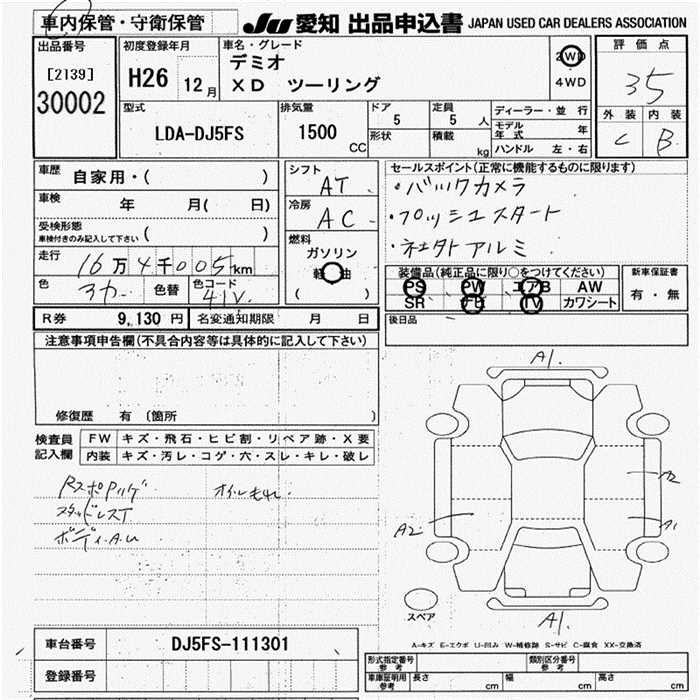 車内保管・守衛保管
JU 愛知 出品申込書 JAPAN USED CAR DEALERS ASSOCIATION
出品番号
[2139]
30002
初度登録年月
H26 12月
車名・グレード
デミオ
XD ツーリング
2WD
4WD
評価点
35
外装 内装
C B
型式
LDA-DJ5FS
排気量
1500 CC
ドア
5
形状
定員
5 人
積載 kg
ディーラー・並行
モデル年式 年
ハンドル 左・右
車歴
自家用・( )
車検
年 月( 日)
受検形態
車検付きのみ記入して下さい ( )
走行
16万4千005km
色
色替
色コード
41V
シフト
AT
冷房
AC
燃料
ガソリン
軽油
( )
セールスポイント(正常に機能するものに限ります)
・バックカメラ
・プッシュスタート
・アルミ
装備品(純正品に限り○をつけてください)
PS PW エアB AW
SR ナビ TV カワシート
新車保証書
有・無
後日品
R券 9,130円 名変通知期限 月 日
注意事項申告欄(不具合内容等は具体的に記入して下さい)
修復歴 有 (箇所 )
検査員記入欄
FW キズ・飛石・ヒビ割・リペア跡・X要
内装 キズ・汚レ・コゲ・穴・スレ・キレ・破レ
スタッドレスT
A1.
A2
A1
A2
A1.
スペア
A-キズ E-エクボ U-凹み W-補修跡 S-サビ C-腐食 XX-交換済
車台番号 DJ5FS-111301
登録番号
形式指定番号 参考
類別区分番号 参考
車庫証明用 参考 長さ cm 幅 cm 高さ cm